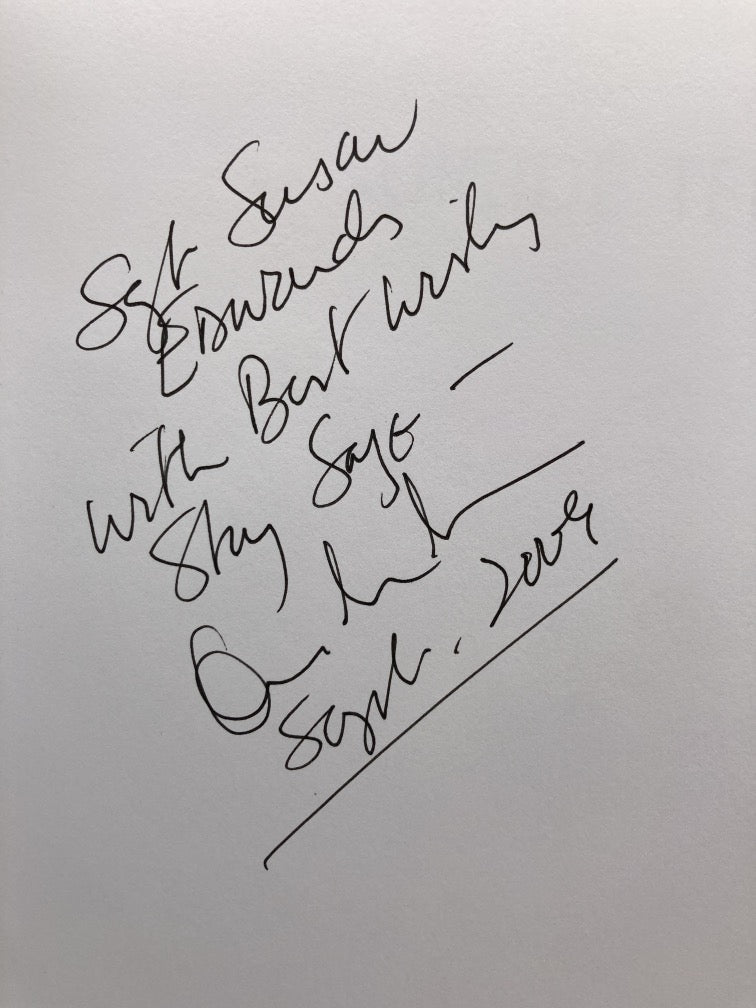 Sgt Susan
Edwards
with Best Wishes
Stay Safe —
Sept. 2009